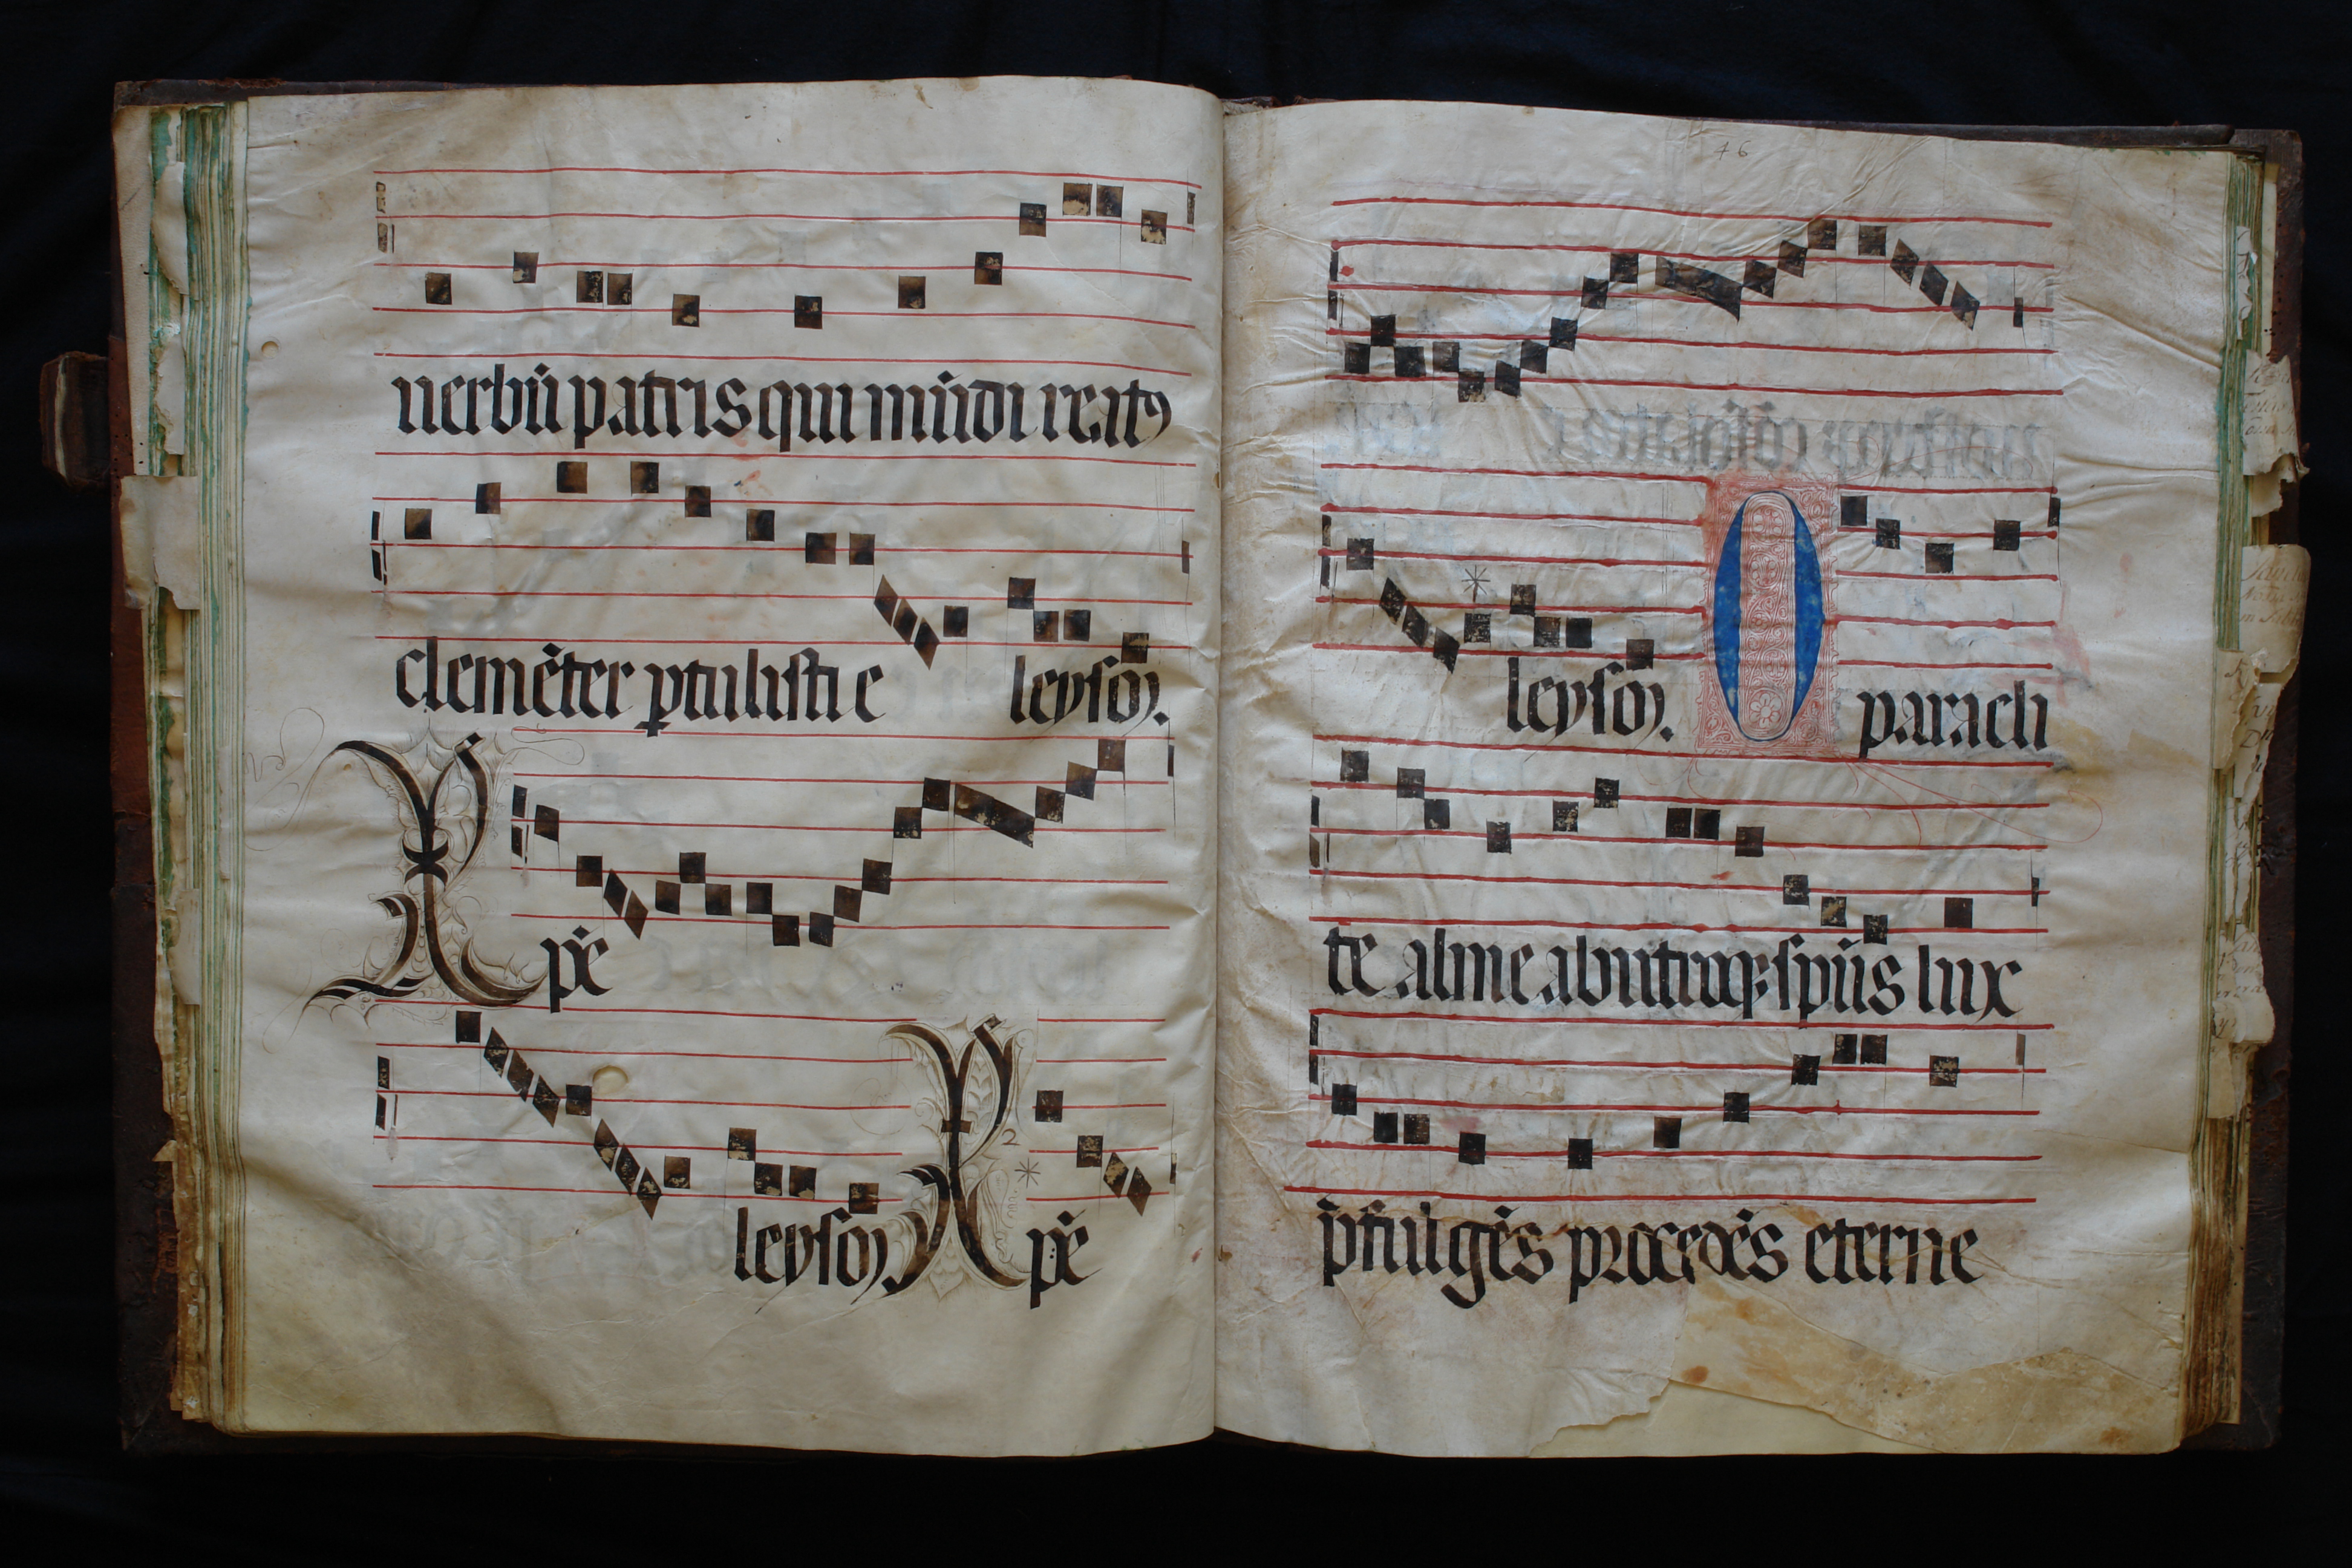 uerbū patris qui mūdi reatꝰ
clemēter ꝑtulisti e leysoȝ.
Xpē
leysoȝ. Xpē
46
leysoȝ. O paracli
te alme ab utroqꝫ spūs lux
p̄fulgēs procedēs eterne